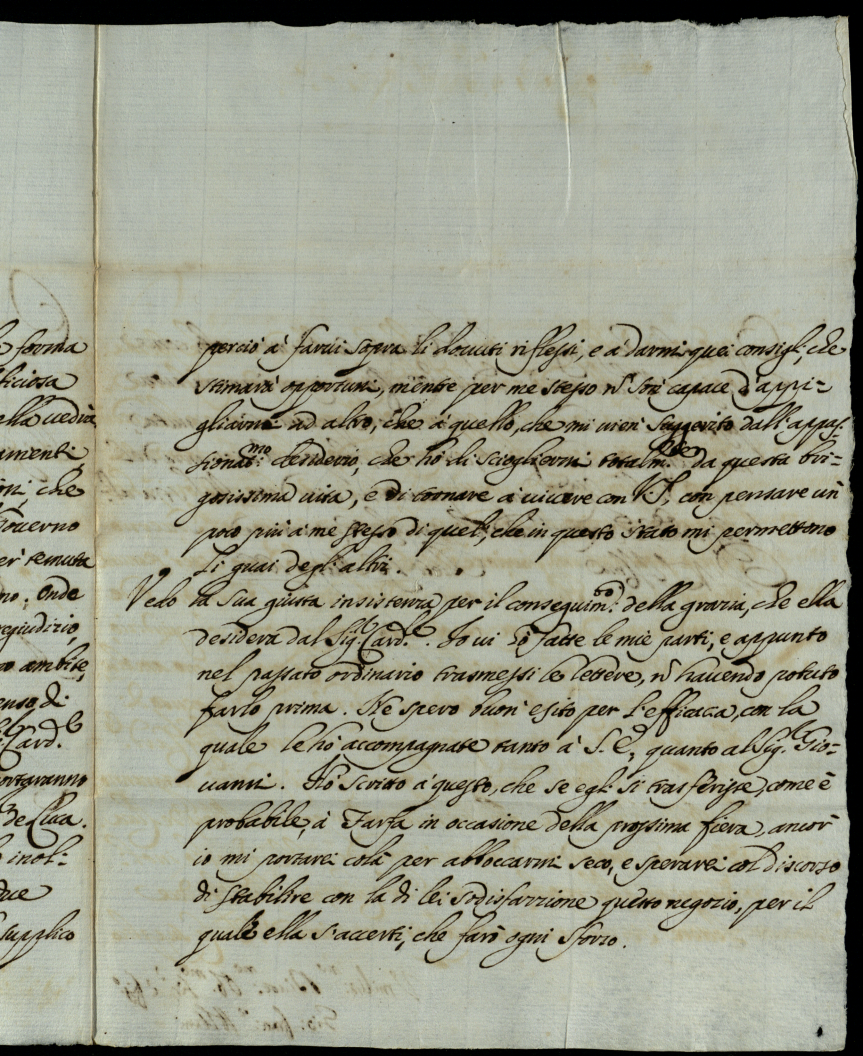 e forma
liciosa
ella uedrà
amenti
oni, che
Gouerno
er temuta
no; onde
regiudizio,
o ambite,
enso di
Card.le
ortaranno
de Luca.
inol-
due
supplico
perciò à farui sopra li douuti riflessi, e à darmi quei consigli, che
stimarà opportuni, mentre per me stesso nõ son capace d'appi-
gliarmi ad altro, che à quello, che mi uien suggerito dall'appas-
sionatmo: desiderio, che hò di sciogliermi totalm.te da questa bri-
gosissima uita, e di tornare à uiuere con V.S., con pensare un
poco più à me stesso di quel, che in questo stato mi permettono
li guai degl'altri.
Vedo la sua giusta insistenza per il conseguim.to della grazia, che ella
desidera dal Sig.r Card.le. Io ui hò fatte le mie parti, e appunto
nel passato ordinario trasmessi le lettere, nõ hauendo potuto
farlo prima. Ne spero buon esito per l'efficacia, con la
quale le hò accompagnate tanto à S. E., quanto al Sig.r Gio-
uanni. Hò scritto à questo, che se egli si trasferisse, come è
probabile, à Farfa in occasione della prossima fiera, ancor
io mi portarei colà per abboccarmi seco, e sperarei col discorso
di stabilire con la di lei sodisfazzione questo negozio, per il
quale ella s'accerti, che farò ogni sforzo.